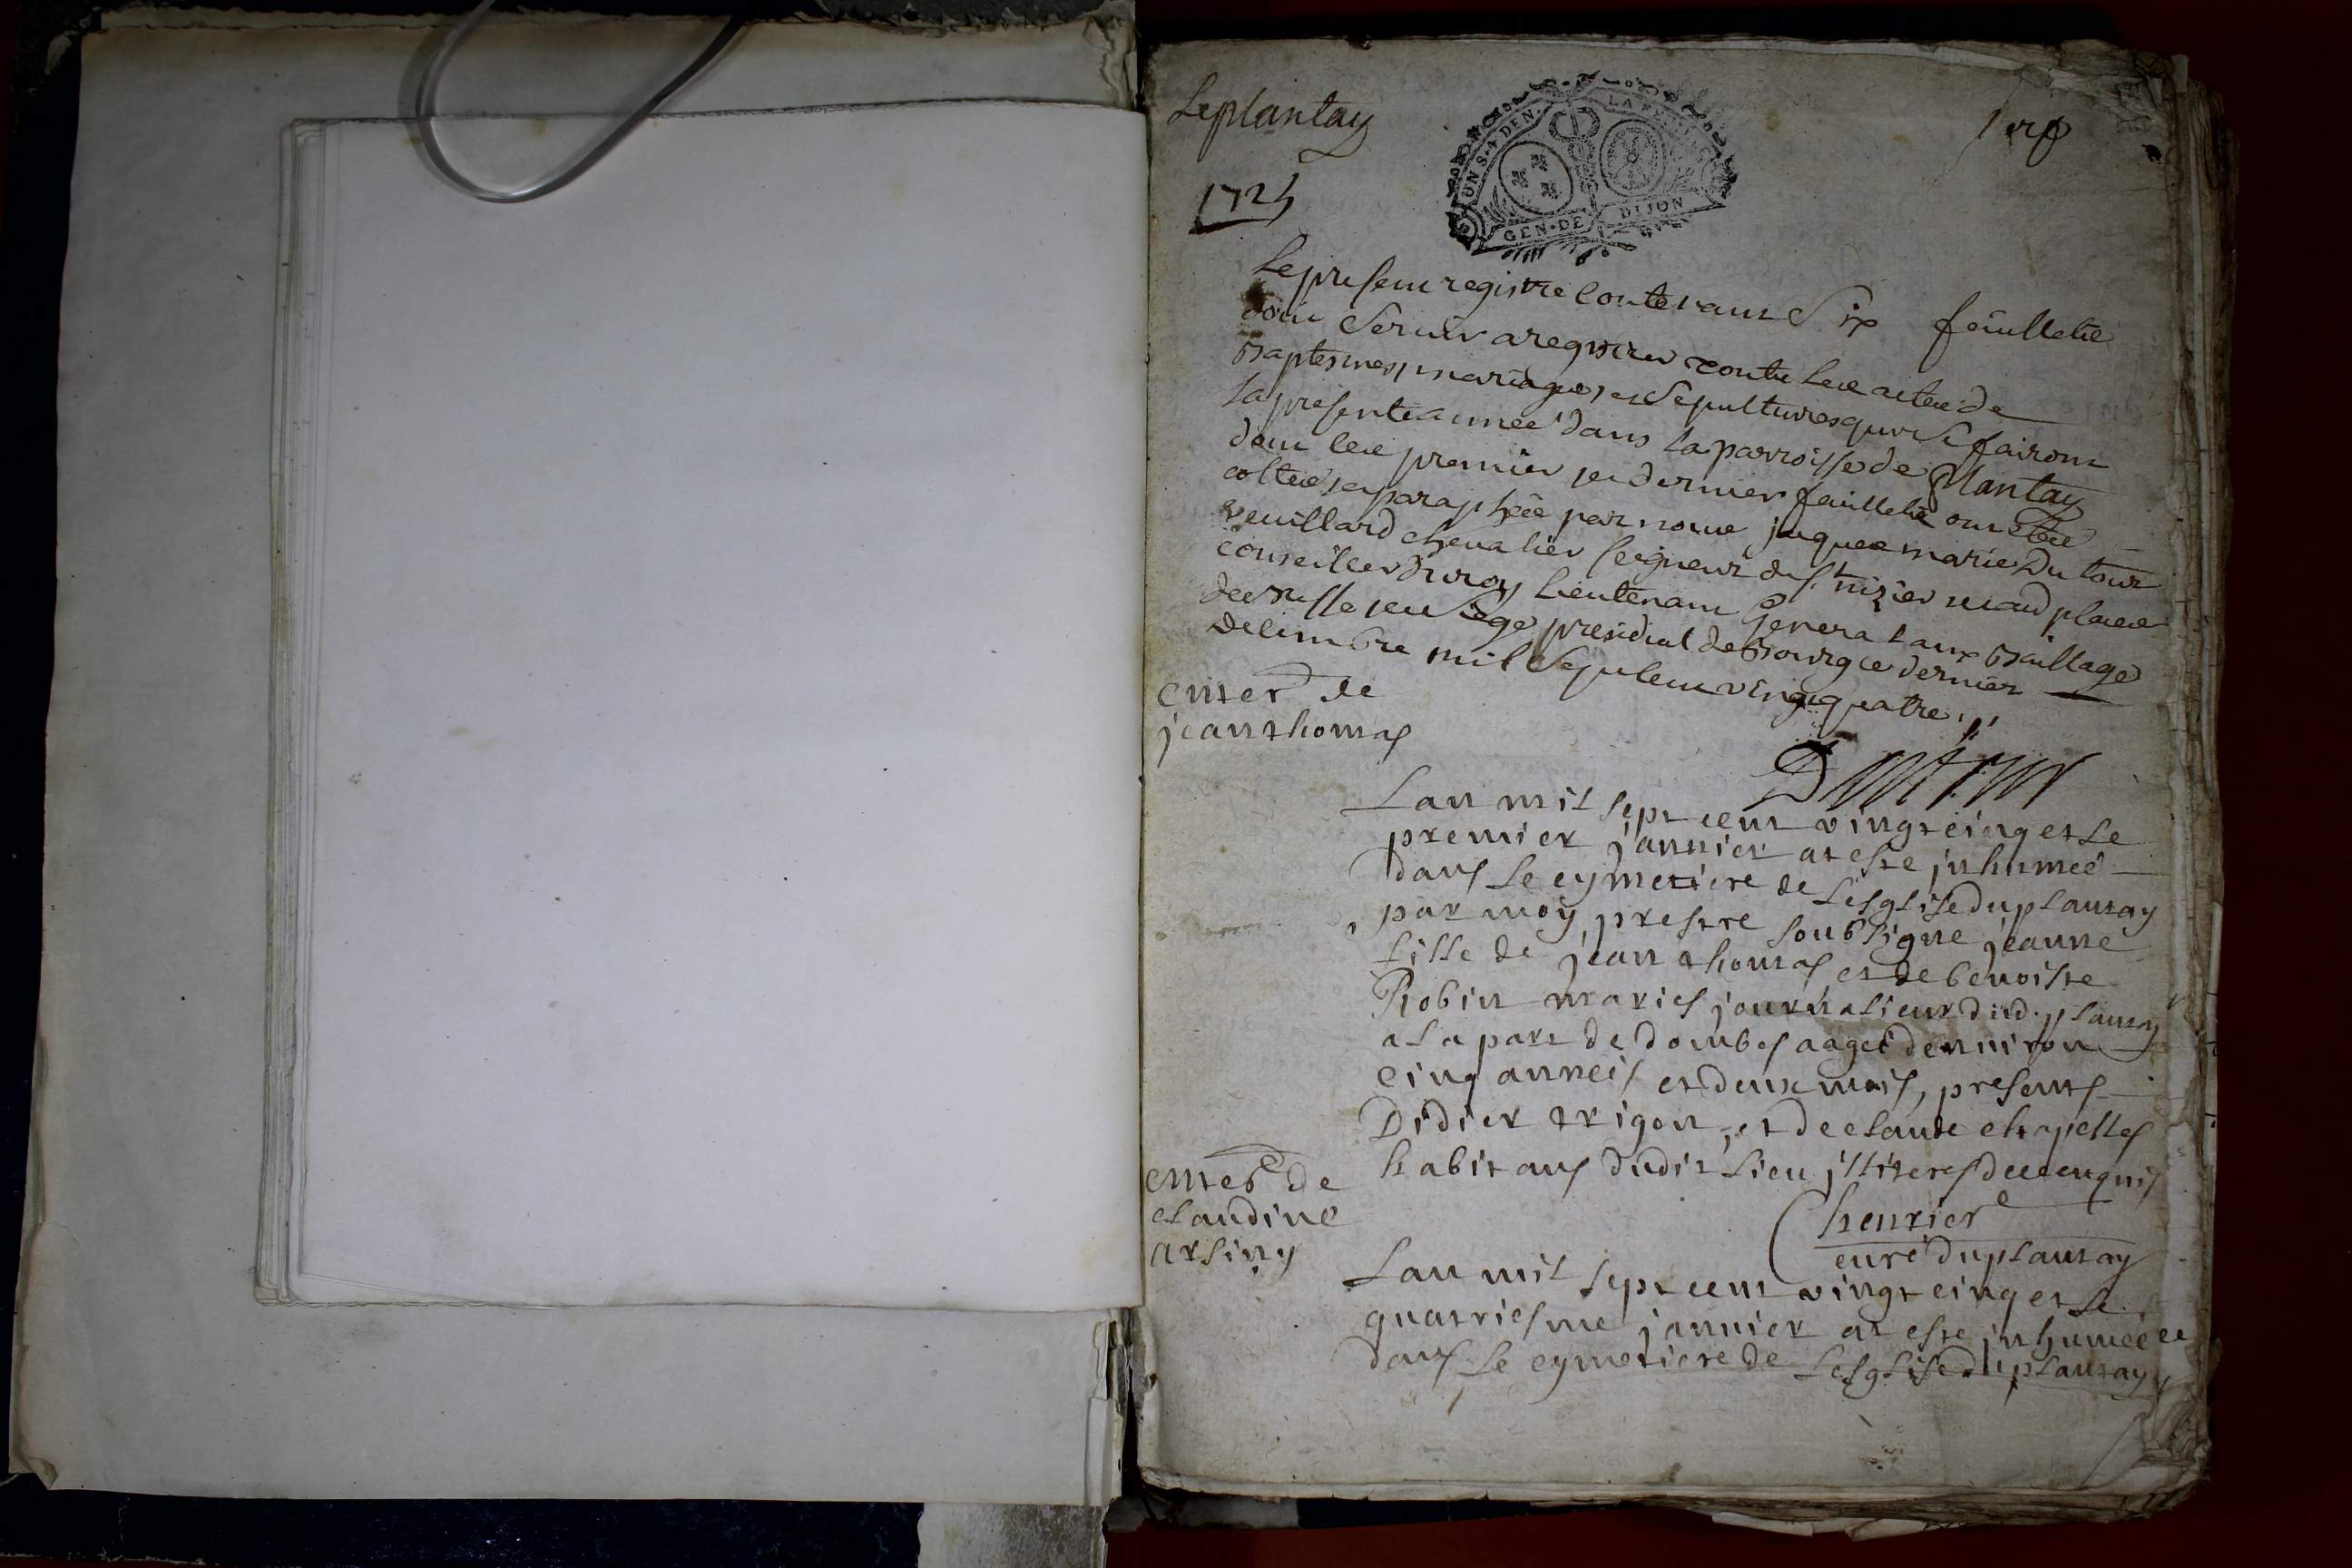 Le plantay
UN S. 4 DEN.
LA FEUILLE
GEN. DE DIJON
1725
Le present registre contenant Six feuillets
doit Servir a registrer toutes les actes de
Baptesmes, mariages, et Sepultures qui se fairont
la presente année dans la parroisse de Plantay
dont les premier et dernier feuillets ont étés
cottés, et paraphés par nous jaques marie Du tour
vuillard chevalier seigneur de st nizier
conseiller du roy Lieutenant General aux Baillage
et Siege presidial de Bourg ce dernier
Decembre mil Sept cent vingt quatre
Dutour
enter de
jean thomas
Lan mil sept cent vingt cinq et le
premier janvier at este jnhumeé
dans le cymetiere de Lesglise du plantay
par moy prestre soubsigne jeanne
fille de jean thomas et de benoiste
Robin mariés journalieurs dud. plantay
a la part de dombes aageé denviron
Cinq anneés et deux mois, presents
Didier trigon, et de claude chapelles
habitans dudit lieu jlliteres de ce enquis
Chenrier
curé du plantay
enter de
claudine
arsiny
Lan mil sept cent vingt cinq et le
quatriesme janvier at este jnhumeé
dans le cymetiere de Lesglise du plantay